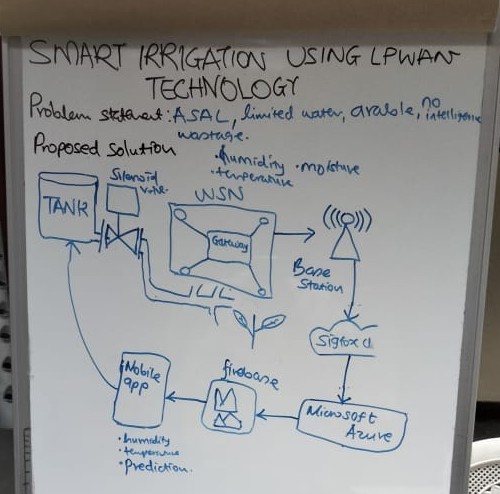 SMART IRRIGATION USING LPWAN
TECHNOLOGY
Problem statement: ASAL, limited water, arable, no intelligence
wastage.
Proposed solution
• humidity • moisture
• temperature
Solenoid
Valve
TANK
WSN
Gateway
Base
Station
Sigfox cl
Microsoft
Azure
firebase
Mobile
app
• humidity
• temperature
• Prediction.